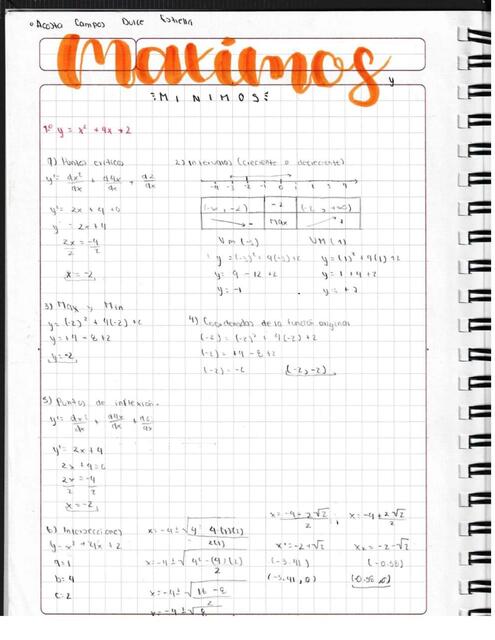 Acosta Campos Dulce Estrella
Maximos y
MINIMOS
1. y = x² + 4x + 2
1) Puntos criticos
y' = dx²/dx + d4x/dx + d2/dx
y' = 2x + 4 + 0
y = 2x + 4
2x/2 = -4/2
x = -2
2) Intervalos (creciente o decreciente)
-4 -3 -2 -1 0 1 2 3 4
(-∞, -2) | -2 | (-2, +∞)
- | Max | +
Vm (-3)
y = (-3)² + 4(-3) + 2
y = 9 - 12 + 2
y = -1
VM (1)
y = (1)² + 4(1) + 2
y = 1 + 4 + 2
y = +7
3) Max y Min
y = (-2)² + 4(-2) + 2
y = +4 - 8 + 2
y = -2
4) Coordenadas de la función original
(-2) = (-2)² + 4(-2) + 2
(-2) = +4 - 8 + 2
(-2) = -2
(-2, -2)
5) Puntos de inflexión.
y' = dx²/dx + d4x/dx + d2/dx
y' = 2x + 4
2x + 4 = 0
2x/2 = -4/2
x = -2
6) Intersecciones
y = x² + 4x + 2
a = 1
b = 4
c = 2
x = -4 ± √4² - 4(1)(2) / 2(1)
x = -4 ± √4² - (4)(2) / 2
x = -4 ± √16 - 8 / 2
x = -4 ± √8
x = -4 + 2√2 / 2 ; x = -4 + 2√2 / 2
x₁ = -2 + √2
(-3.41)
(-3.41, 0)
x₂ = -2 - √2
(-0.58)
(-0.58, 0)